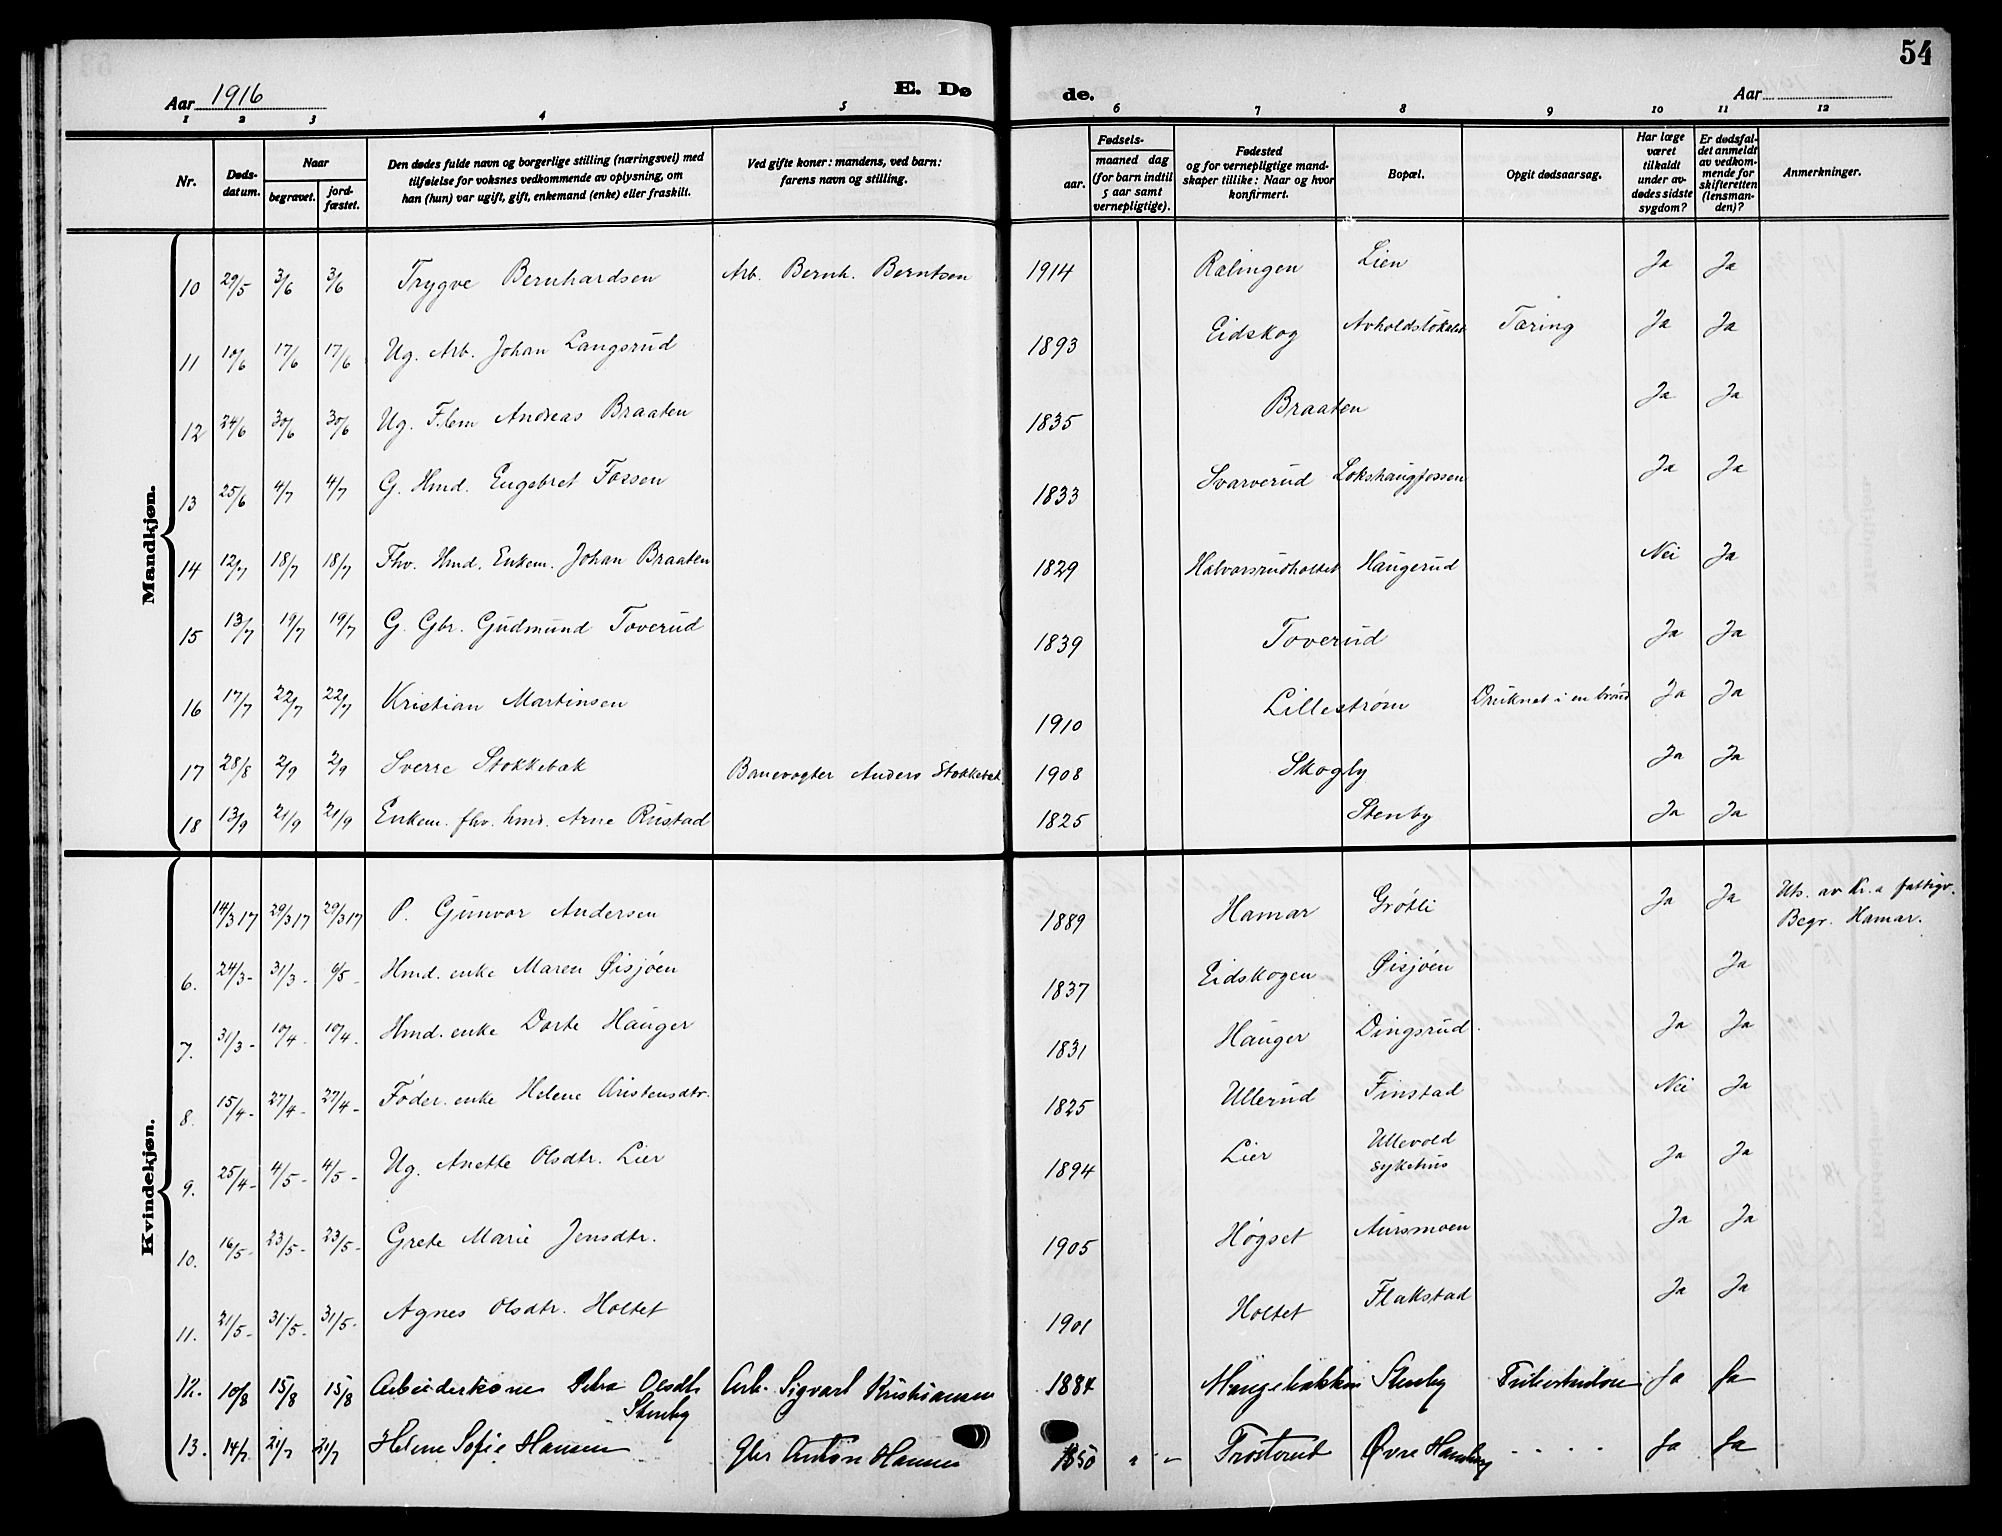 54
Aar 1916
E. Dø
de.
Aar
1 2 3 4 5
6 7 8 9 10 11 12
Nr.
Døds-
datum.
Naar
begravet.
jord-
fæstet.
Den dødes fulde navn og borgerlige stilling (næringsvei) med
tilføielse for voksnes vedkommende av oplysning, om
han (hun) var ugift, gift, enkemand (enke) eller fraskilt.
Ved gifte koner: mandens, ved barn:
farens navn og stilling.
Fødsels-
aar.
maaned dag
(for barn indtil
5 aar samt
vernepligtige).
Fødested
og for vernepligtige mand-
skaper tillike: Naar og hvor
konfirmert.
Bopæl.
Opgit dødsaarsag.
Har læge
været
tilkaldt
under av-
dødes sidste
sygdom?
Er dødsfal-
det anmeldt
av vedkom-
mende for
skifteretten
(lensman-
den)?
Anmerkninger.
Mandkjøn.
10 29/5 3/6 3/6 Trygve Bernhardsen Arb. Bernh. Berntsen 1914 Rælingen Lien Ja Ja
11 10/6 17/6 17/6 Ug. Arb. Johan Langsrud 1893 Eidskog Avholdslokalet Tæring Ja Ja
12 24/6 30/6 30/6 Ug. Flem Andreas Braaten 1835 Braaten Ja Ja
13 25/6 4/7 4/7 G. Hmd. Engebret Fossen 1833 Svarverud Lokshaugfossen Ja Ja
14 12/7 18/7 18/7 Fhv. Hmd. Enkem. Johan Braaten 1829 Halvorsrudholtet Haugerud Nei Ja
15 13/7 19/7 19/7 G. Gbr. Gudmund Toverud 1839 Toverud Ja Ja
16 17/7 22/7 22/7 Kristian Martinsen 1910 Lillestrøm Druknet i en brønd Ja Ja
17 28/8 2/9 2/9 Sverre Stokkebæk Banevogter Anders Stokkebæk 1908 Skogly Ja Ja
18 13/9 21/9 21/9 Enkem. fhv. hmd. Arne Rustad 1825 Stenby Ja Ja
Kvindekjøn.
14/3 17 29/3 17 29/3 17 P. Gunvor Andersen 1889 Hamar Grøtli Ja Ja Uts. av Kr.a fattigv.
Begr. Hamar.
6. 24/3 - 31/3 - 6/5 - Hmd. enke Maren Øisjøen 1837 Eidskogen Øisjøen Ja
7. 31/3 - 10/4 - 10/4 - Hmd. enke Dorte Hauger 1831 Hauger Dingsrud. Ja Ja
8. 15/4 - 27/4 - 27/4 - Føder. enke Helene Kristensdtr. 1825 Ullerud Finstad Nei Ja
9. 25/4 - 4/5 - 4/5 - Ug. Anette Olsdtr. Lier 1894 Lier Ullevold
sykehus Ja Ja
10. 16/5 - 23/5 - 23/5 - Grete Marie Jensdtr. 1905 Høgset Aursmoen Ja Ja
11. 21/5 - 31/5 - 31/5 - Agnes Olsdtr. Holtet 1901 Holtet Flakstad Ja Ja
12. 10/8 15/8 15/8 Arbeiderkone Petra Olsdtr. Arb. Sigvart Kristiansen 1884 Stenby Ja Ja
Stenby
13. 14/7 21/7 21/7 Helene Sofie Hansen Gbr Anton Hansen 1850 " " Trosterud Øvre - - - - Ja Ja